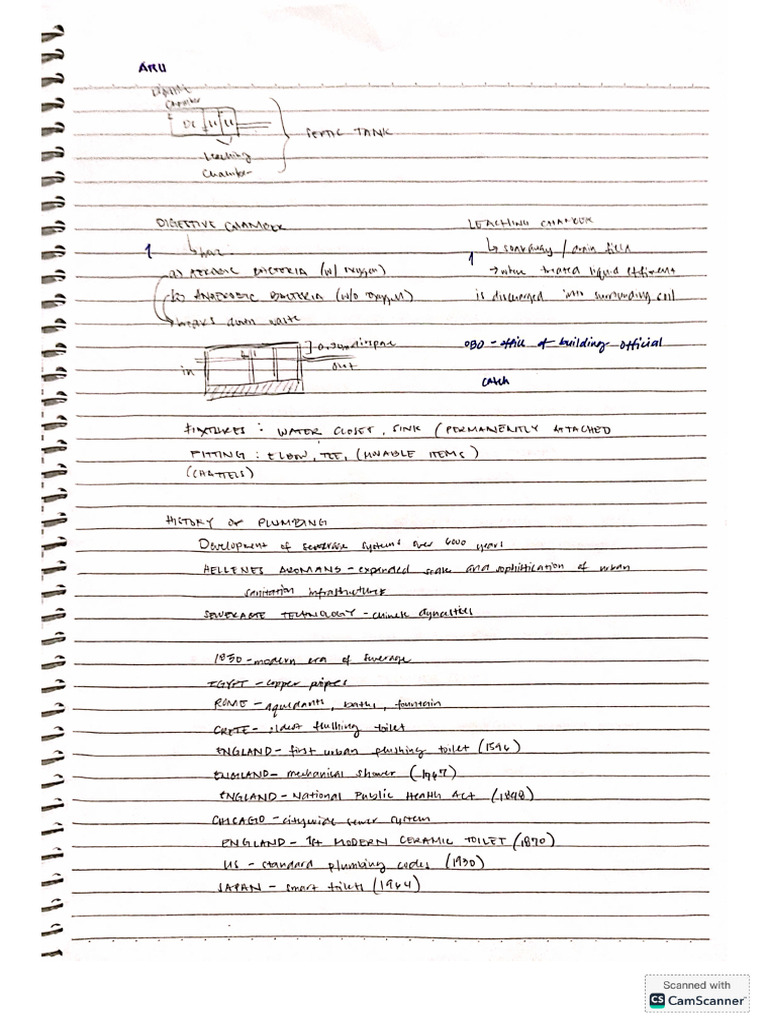 ARU
Digestive
chamber
DC LC LC
SEPTIC TANK
Leaching
Chamber
DIGESTIVE CHAMBER
LEACHING CHAMBER
1
↳ has
1
↳ soakaway / drain field
a) AEROBIC BACTERIA (w/ oxygen)
→ where treated liquid effluent
b) ANAEROBIC BACTERIA (w/o oxygen)
is discharged into surrounding soil
→ breaks down waste
in
out
OBO - office of building official
catch
FIXTURES : WATER CLOSET, SINK (PERMANENTLY ATTACHED
FITTING : ELBOW, TEE, (MOVABLE ITEMS)
(CHATTELS)
HISTORY OF PLUMBING
Development of sewerage systems over 6000 years
HELLENES & ROMANS - expanded scale and sophistication of urban
sanitation infrastructure
SEWERAGE TECHNOLOGY - chinese dynasties
1850 - modern era of sewerage
EGYPT - copper pipes
ROME - aqueducts, baths, fountain
CRETE - oldest flushing toilet
ENGLAND - first urban flushing toilet (1596)
ENGLAND - mechanical shower
ENGLAND - National Public Health Act (1848)
CHICAGO - citywide sewer system
ENGLAND - 1st MODERN CERAMIC TOILET (1870)
US - standard plumbing codes (1930)
JAPAN - smart toilets (1964)
Scanned with
CS CamScanner